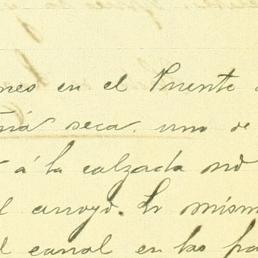 nes en el Puente
seca. uno de
á la calzada no
l arroyo. Lo mism
l canal en las pa